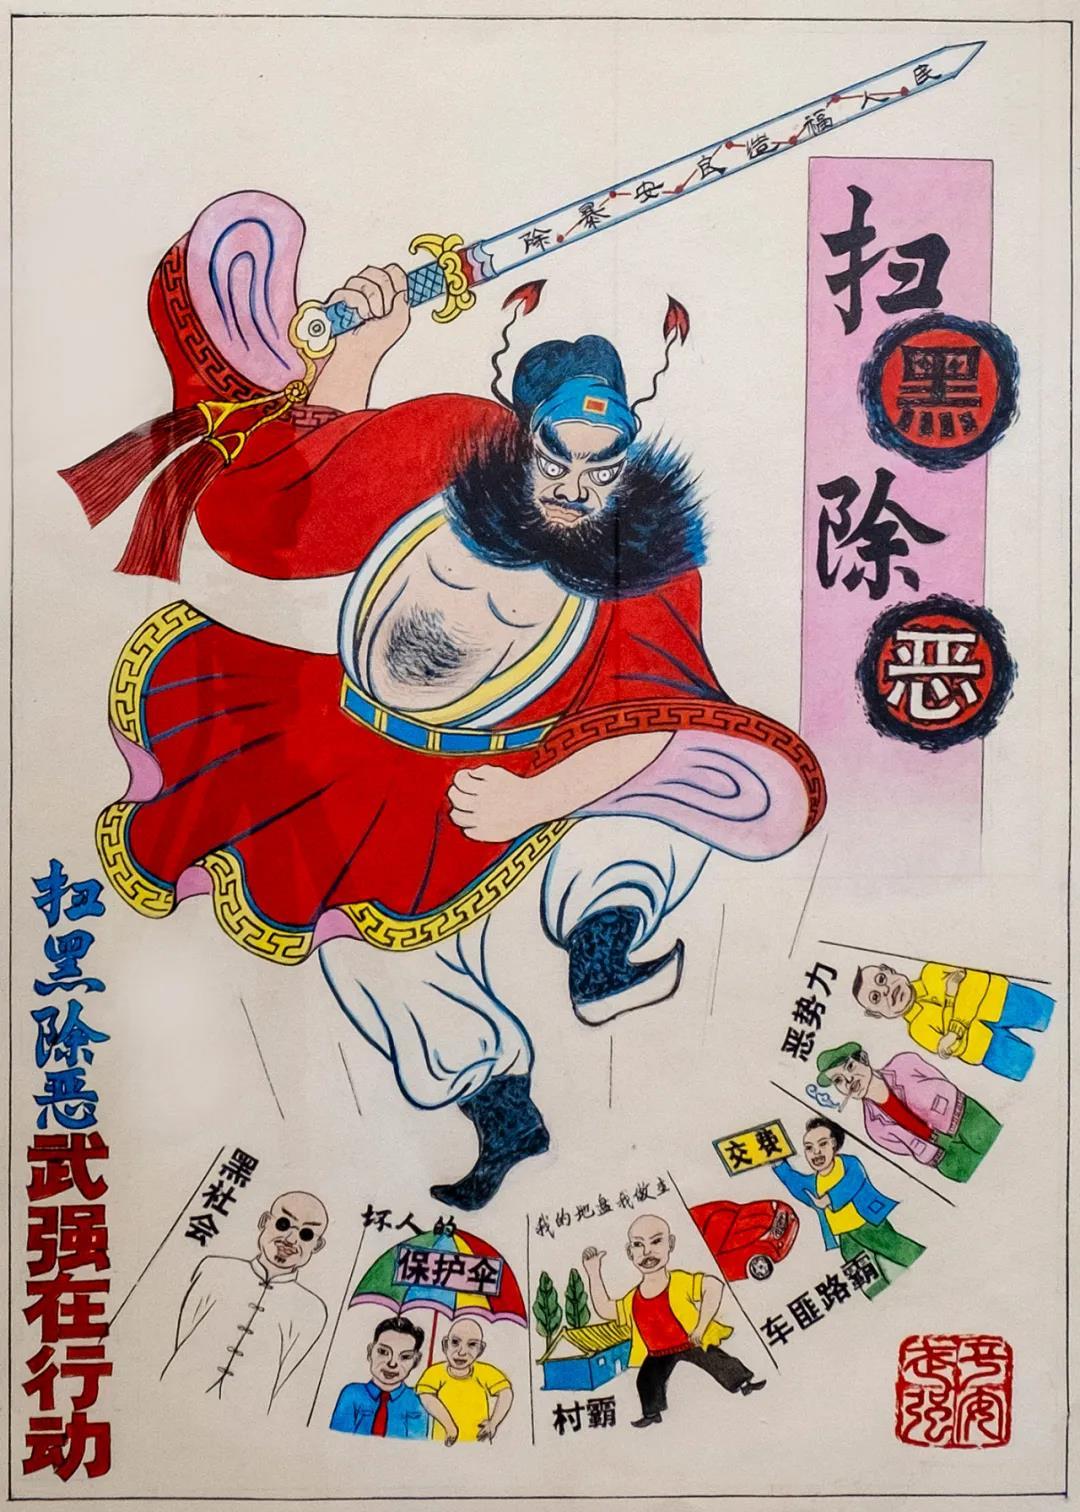 除暴安良造福人民
扫黑除恶
扫黑除恶武强在行动
黑社会
坏人的
保护伞
我的地盘我做主
村霸
交费
车匪路霸
恶势力
平安
武强